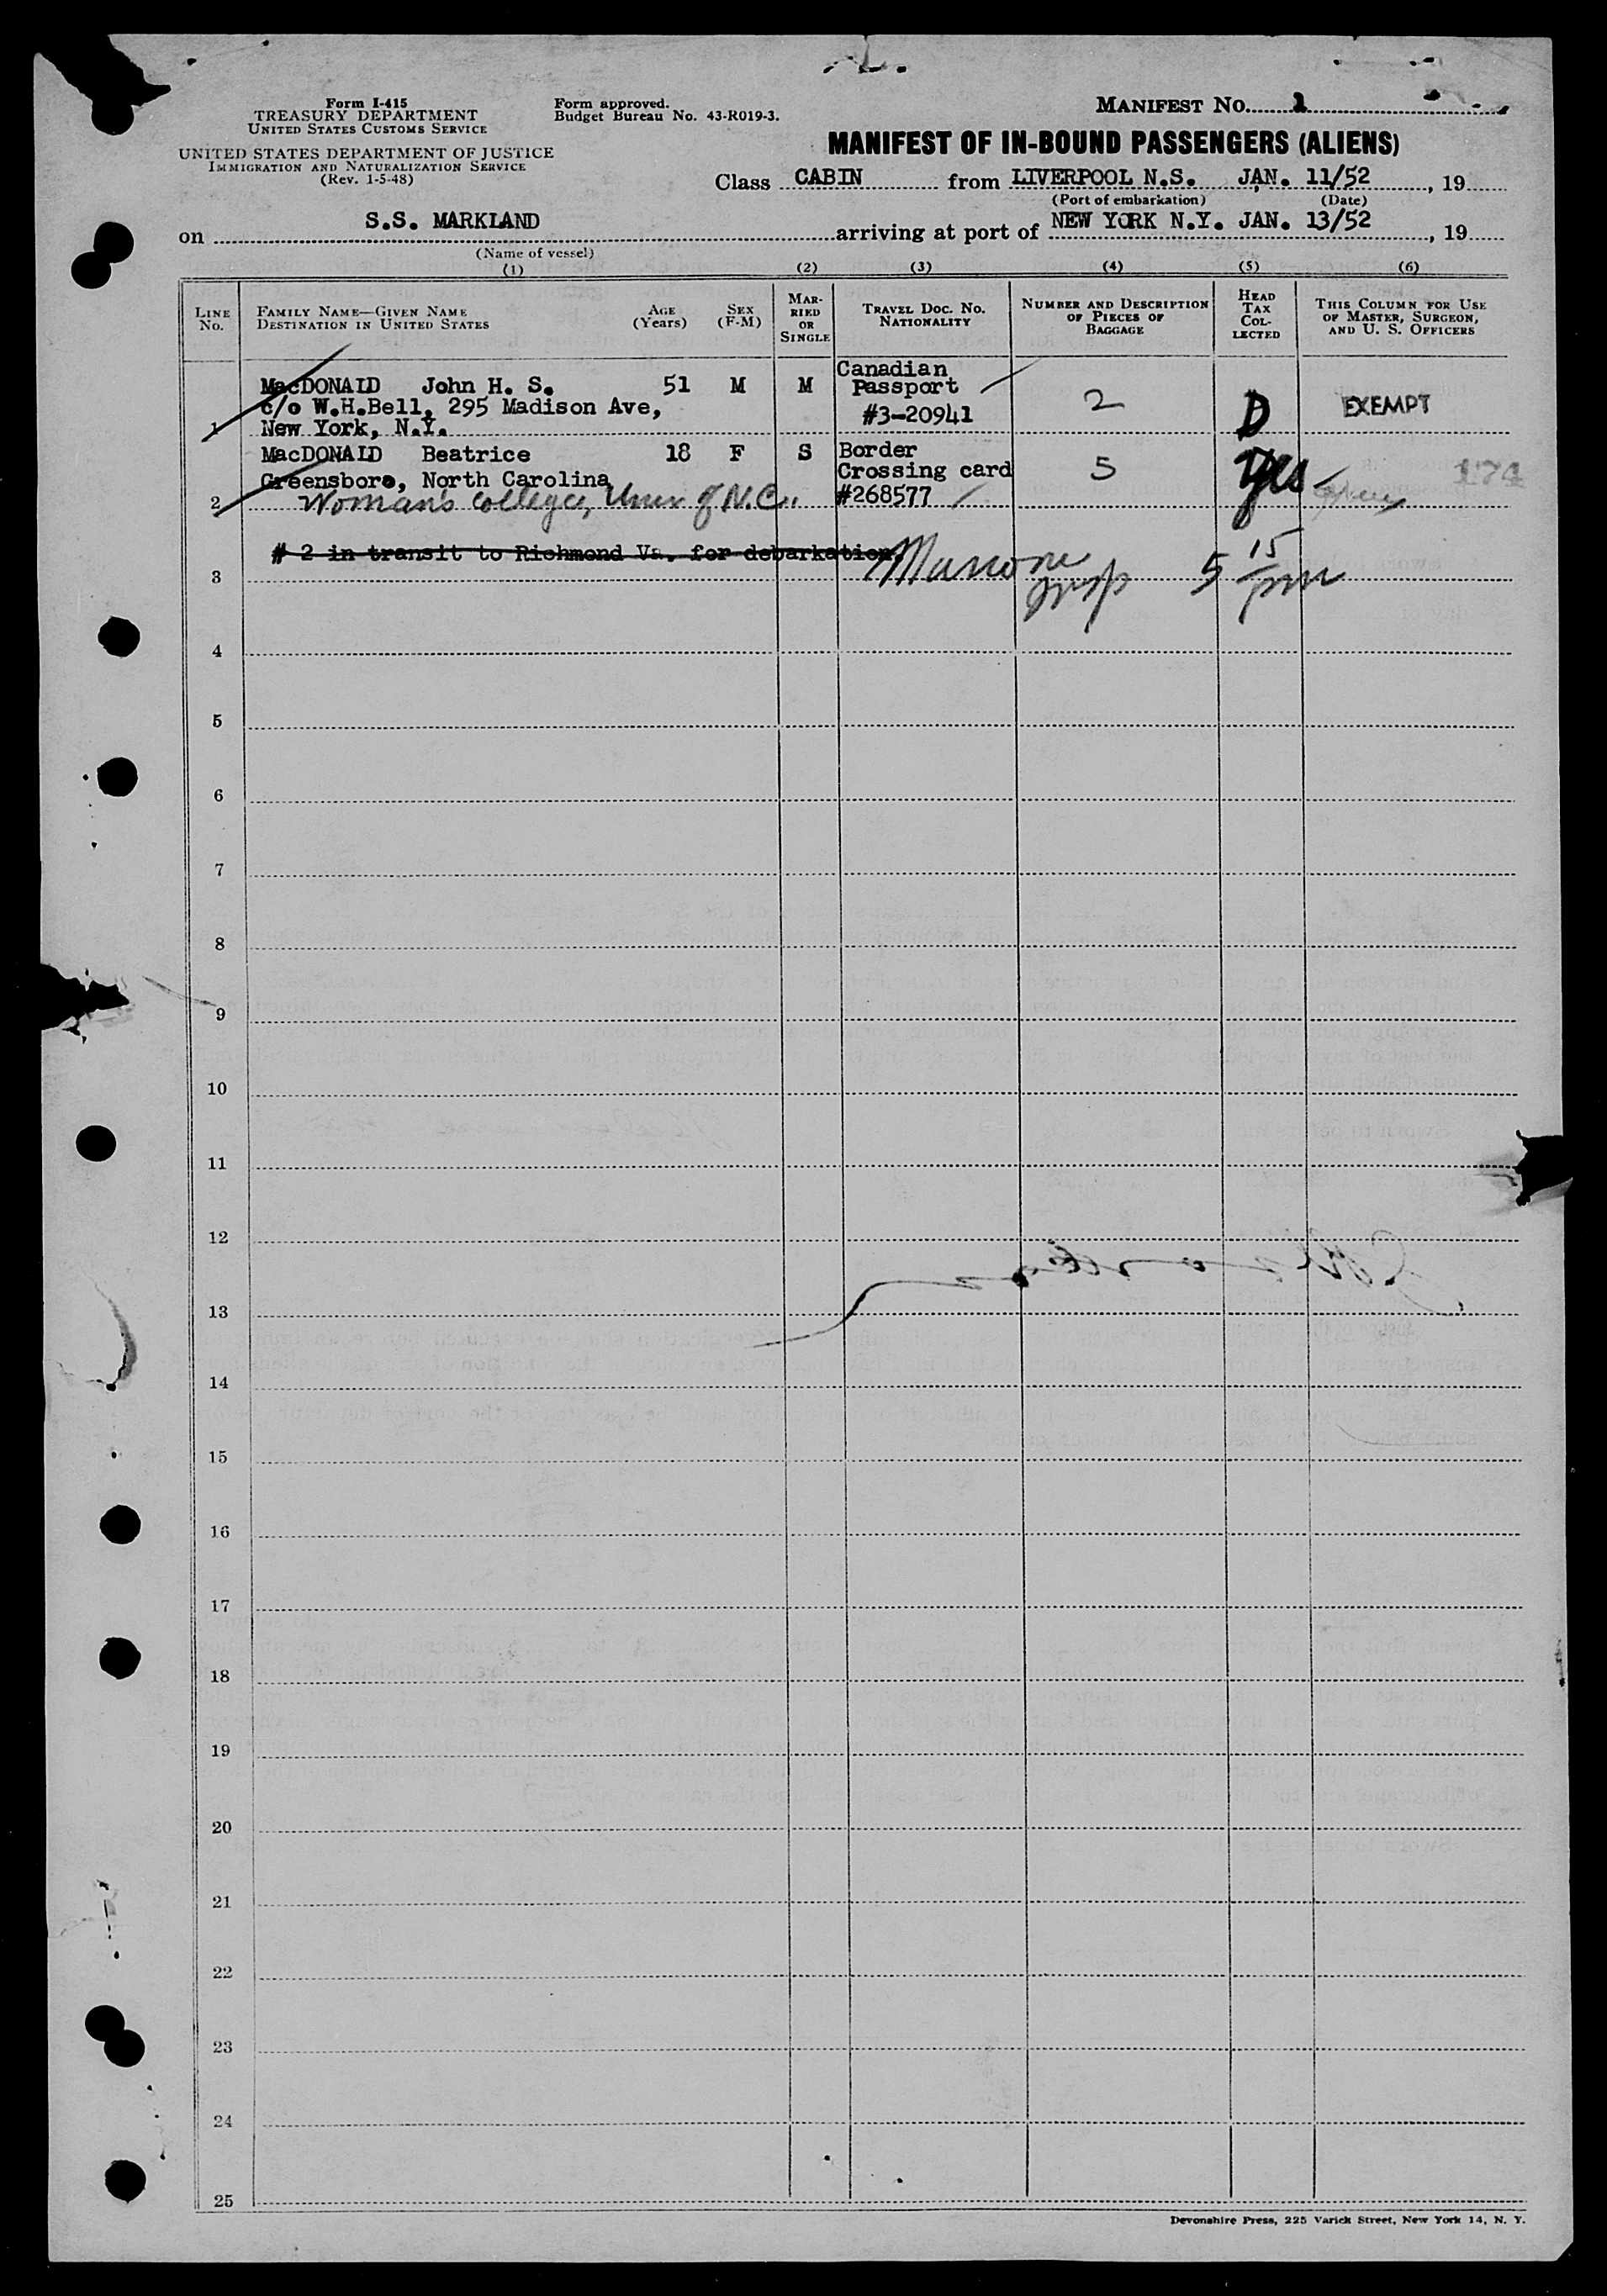 Form I-415
TREASURY DEPARTMENT
UNITED STATES CUSTOMS SERVICE
UNITED STATES DEPARTMENT OF JUSTICE
IMMIGRATION AND NATURALIZATION SERVICE
(Rev. 1-5-48)
Form approved.
Budget Bureau No. 43-R019-3.
MANIFEST NO. 1
MANIFEST OF IN-BOUND PASSENGERS (ALIENS)
Class CABIN from LIVERPOOL N.S. JAN. 11/52, 19
(Port of embarkation) (Date)
on S.S. MARKLAND arriving at port of NEW YORK N.Y. JAN. 13/52, 19
(Name of vessel)
(1) (2) (3) (4) (5) (6)
LINE No. FAMILY NAME—GIVEN NAME DESTINATION IN UNITED STATES AGE (Years) SEX (F-M) MARRIED OR SINGLE TRAVEL DOC. NO. NATIONALITY NUMBER AND DESCRIPTION OF PIECES OF BAGGAGE HEAD TAX COLLECTED THIS COLUMN FOR USE OF MASTER, SURGEON, AND U. S. OFFICERS
Canadian
MacDONALD John H. S. 51 M M Passport
c/o W.H.Bell, 295 Madison Ave, #3-20941 2 D EXEMPT
1 New York, N.Y.
MacDONALD Beatrice 18 F S Border
Greensboro, North Carolina Crossing card 5 Yes 174
2 Woman's College, Univ of N.C. #268577
# 2 in transit to Richmond Va. for debarkation.
3 5 15 pm
4
5
6
7
8
9
10
11
12
13
14
15
16
17
18
19
20
21
22
23
24
25
Devonshire Press, 225 Varick Street, New York 14, N. Y.